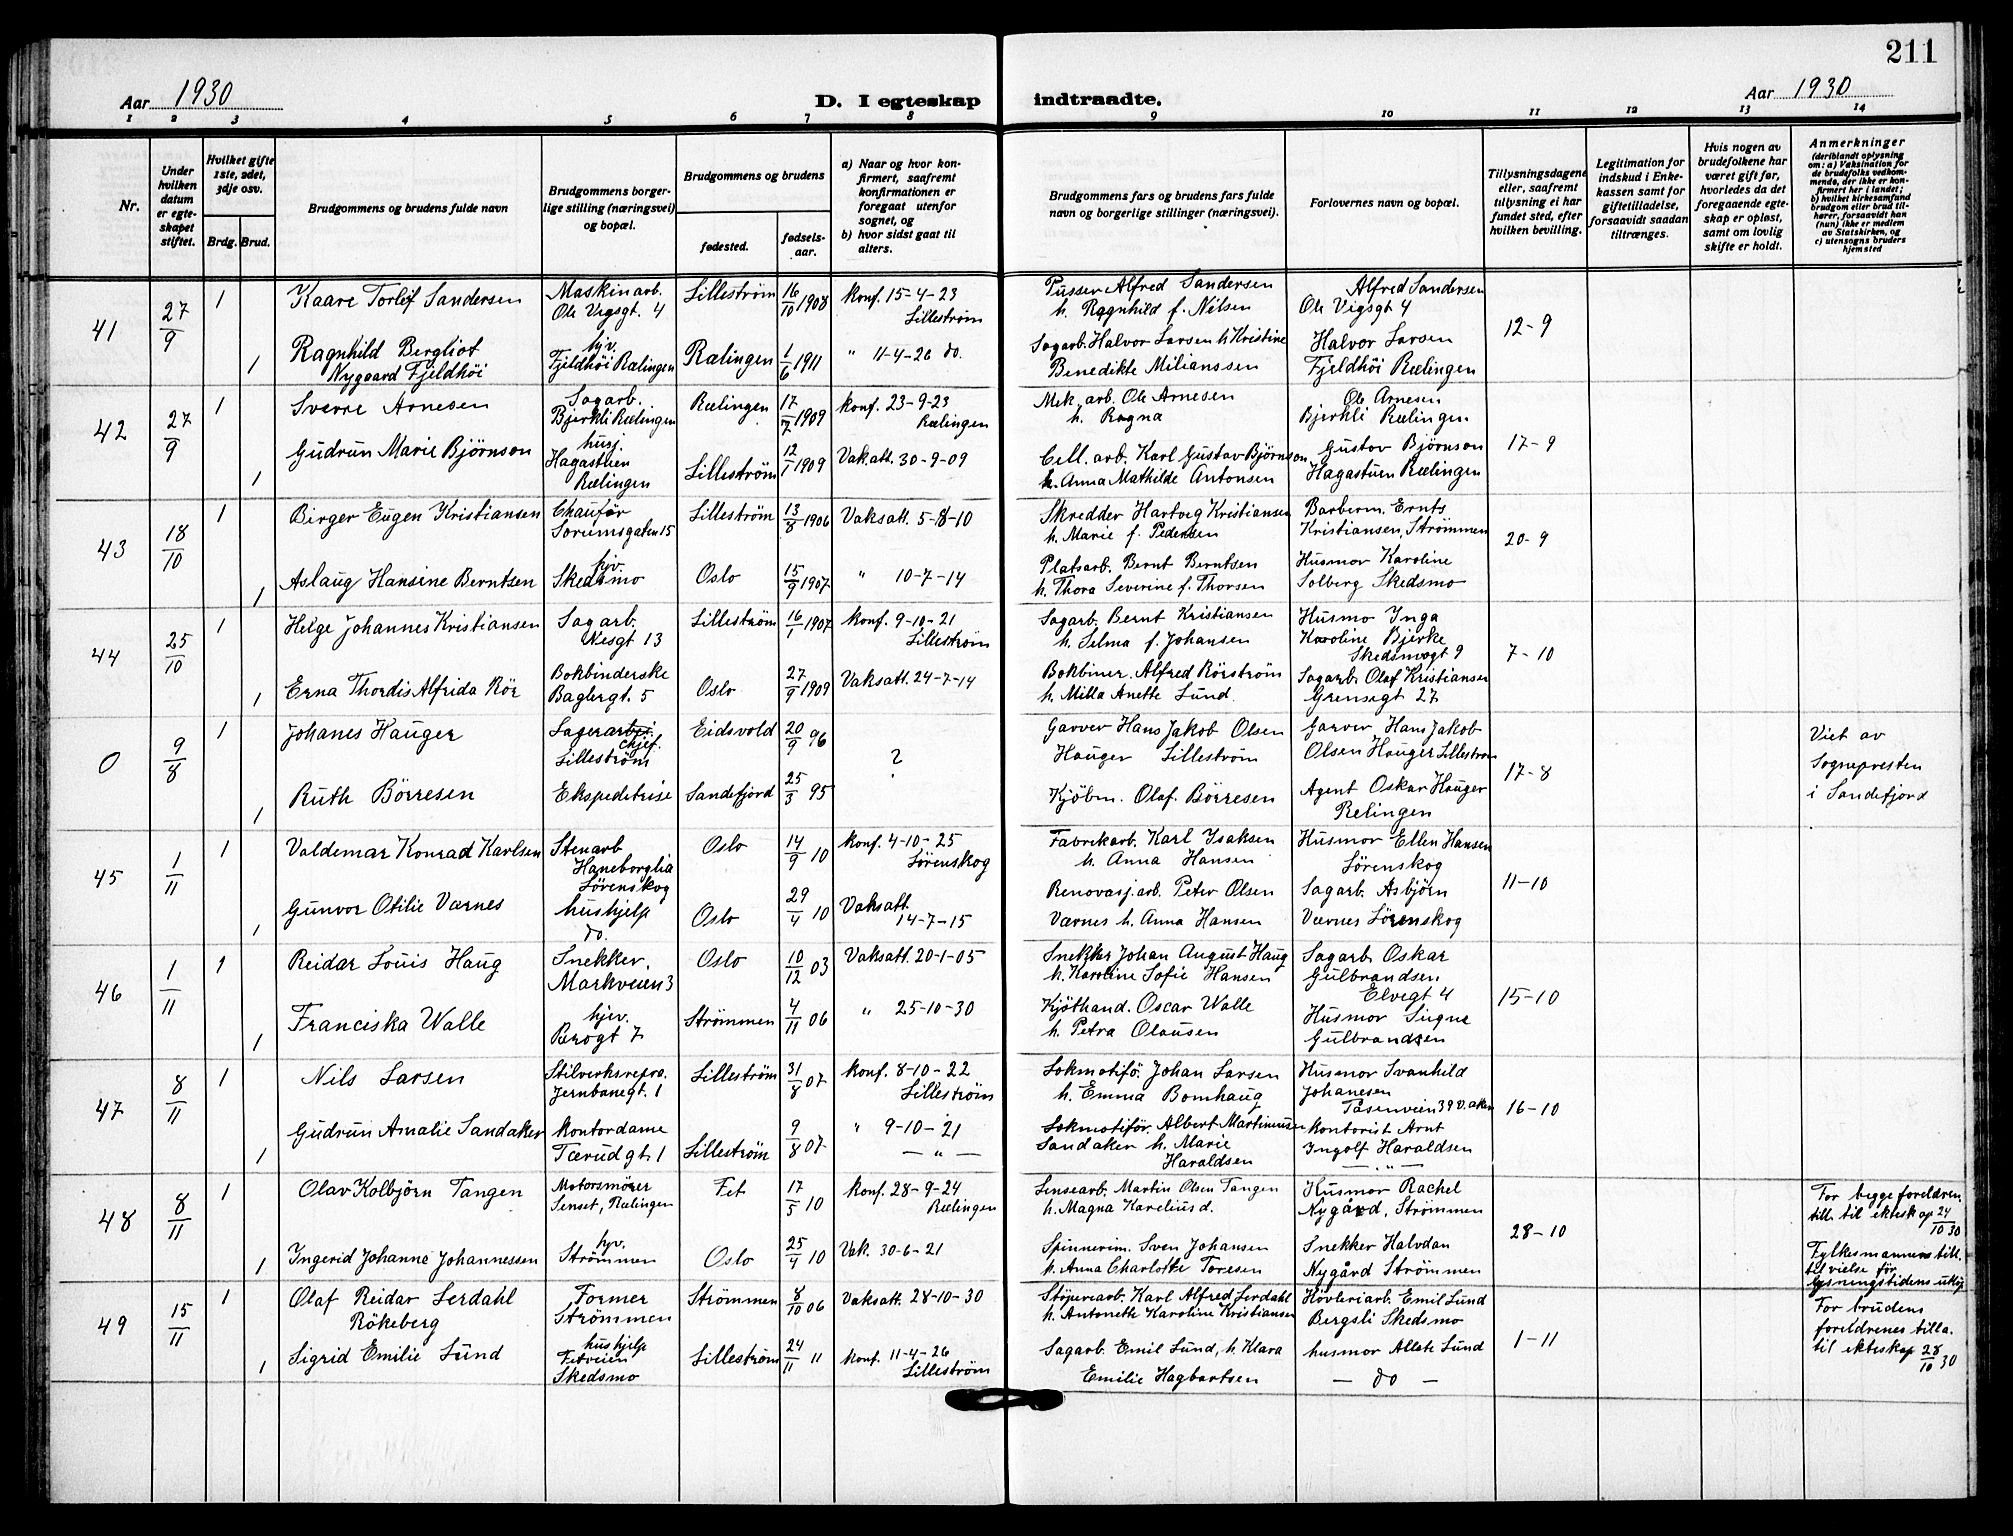 211
Aar 1930
D. I egteskap
indtraadte.
Aar 1930
1 2 3 4 5 6 7 8 9 10 11 12 13 14
Nr.
Under hvilken datum er egteskapet stiftet.
Hvilket gifte 1ste, 2det, 3dje osv.
Brdg. Brud.
Brudgommens og brudens fulde navn
Brudgommens borgerlige stilling (næringsvei) og bopæl.
Brudgommens og brudens
fødested.
fødselsaar.
a) Naar og hvor konfirmert, saafremt konfirmationen er foregaat utenfor sognet, og
b) hvor sidst gaat til alters.
Brudgommens fars og brudens fars fulde navn og borgerlige stillinger (næringsvei).
Forlovernes navn og bopæl.
Tillysningsdagene eller, saafremt tillysning ei har fundet sted, efter hvilken bevilling.
Legitimation for indskud i Enkekassen samt for giftetilladelse, forsaavidt saadan tiltrænges.
Hvis nogen av brudefolkene har været gift før, hvorledes da det foregaaende egteskap er opløst, samt om lovlig skifte er holdt.
Anmerkninger
(deriblandt oplysning om: a) Vaksination for de brudefolks vedkommende, der ikke er konfirmert her i landet; b) hvilket kirkesamfund brudgom eller brud tilhører, forsaavidt han (hun) ikke er medlem av Statskirken, og c) utensogns bruders hjemsted
41 27/9 1 Kaare Torleif Sandersen Maskinarb. Lilleström 16/10 1908 konf. 15-4-23 Pusser Alfred Sandersen Alfred Sandersen 12-9
Ole Vigsgt. 4 Lilleström h. Ragnhild f. Nilsen Ole Vigsgt 4
1 Ragnhild Bergliot hjv. Rælingen 1/6 1911 " 11-4-26 do. Sagarb. Halvor Larsen h Kristine Halvor Larsen
Nygaard Fjeldhöi Fjeldhöi Rælingen Benedikte Milianssen Fjeldhöi Rælingen
42 27/9 1 Sverre Arnesen Sagarb. Rælingen 17/7 1909 konf. 23-9-23 Mek. arb. Ole Arnesen Ole Arnesen 17-9
Bjerkli Rælingen Rælingen h. Ragna Bjerkli Rælingen
1 Gudrun Marie Björnson husj. Lilleström 12/1 1909 Vak.att. 30-9-09 Cell. arb. Karl Gustav Björnson Gustav Björnson
Hagastuen Rælingen h. Anna Mathilde Antonsen Hagastuen Rælingen
43 18/10 1 Birger Eugen Kristiansen Chauför Lilleström 13/8 1906 Vaksatt. 5-8-10 Skredder Hartvig Kristiansen Barberm. Ernts 20-9
Sorumsgaten 15 h. Marie f. Pedersen Kristiansen, Strömmen
1 Aslaug Hansine Berntsen hjv. Skedsmo Oslo 15/9 1907 " 10-7-14 Platsarb. Bernt Berntsen Husmor Karoline
h. Thora Severine f. Thorsen Solberg Skedsmo
44 25/10 1 Helge Johannes Kristiansen Sagarb. Lilleström 16/1 1907 konf. 9-10-21 Sagarb. Bernt Kristiansen Husmo Inga 7-10
Nesgt 13 Lilleström h. Selma f. Johansen Karoline Bjerke
Skedsmogt 9
1 Erna Thordis Alfrida Rör Bokbinderske Oslo 27/9 1909 Vaksatt. 24-7-14 Bokbiner. Alfred Rörström Sagarb. Olaf Kristiansen
Baglergt. 5 h. Milla Anette Lund. Grensegt 27
0 9/8 1 Johanes Hauger Lagerarbei. Eidsvold 20/9 96 ? Garver Hans Jakob Olsen Garver, Hans Jakob 17-8 Viet av
chjef. Lilleström Hauger Lilleström Olsen Hauger Lilleström Sognepresten
1 Ruth Börresen Ekspeditrise Sandefjord 25/3 95 Kjöbm. Olaf. Börresen Agent Oskar Hauger i Sandefjord
Relingen
45 1/11 1 Valdemar Konrad Karlsen Stenarb Oslo 14/9 10 konf. 4-10-25 Fabrikarb. Karl Isaksen Husmor Ellen Hansen 11-10
Haneborglia Lörenskog h. Anna Hansen Lörenskog
Lörenskog
1 Gunvor OtilieVærnes hushjelp Oslo 29/4 10 Vaksatt. Renovasj.arb. Peter Olsen Sagarb. Asbjörn
do. 14-7-15 Værnes h. Anna Hansen Værnes Lörenskog
46 1/11 1 Reidar Louis Haug Snekker. Oslo 10/12 03 Vaksatt. 20-1-05 Snekker Johan August Haug Sagarb. Oskar 15-10
Markveien 3 h. Karoline Sofie Hansen Gulbrandsen
Elvegt 4
1 Franciska Walle hjev. Strömmen 4/11 06 " 25-10-30 Kjöthand. Oscar Walle Husmor Signe
7 h. Petra Olausen Gulbrandsen
47 8/11 1 Nils Larsen Stilverksrepra. Lilleström 31/8 07 konf. 8-10-22 Lokmotifö. Johan Larsen Husmor Svanhild 16-10
Jernbanegt. 1 Lilleström h. Emma Bomhaug Johanesen
Tåsenveien 39 V. aker
1 Gudrun Amalie Sandaker kontordame Lilleström 9/8 07 " 9-10-21 Lokmotiför. Albert Martinusen kontorist Arnt
Tærudgt. 1 — " — Sandaker h. Marie Ingolf Haraldsen
Haraldsen — " —
48 8/11 1 Olav Kolbjörn Tangen Motorsmörer Fet 17/5 10 konf. 28-9-24 Lensearb. Martin Olsen Tangen Husmor Rachel 28-10 For begge foreldren.
Senset, Rælingen Rælingen h. Magna Kareliusd. Nygård, Strömmen till. til ekteskap 24/10 30
1 Ingerid Johanne Johannessen hjv. Strömmen Oslo 25/4 10 Vak. 30-6-21 Spinnerim. Sven Johansen Snekker Halvdan Fylkesmannens till.
h. Anna Charlotte Toresen Nygård Strömmen til vielse för
lysningstidens utlöp
49 15/11 1 Olaf Reidar Lerdahl Former Strömmen 8/10 06 Vaksatt. 28-10-30 Stöperarb. Karl Alfred Lerdahl Hövleriarb. Emil Lund 1-11 For brudens
Rökeberg Strömmen h. Antonette Karoline Kristiansen Bergsli Skedsmo foreldrenes tilla.
1 Sigrid Emilie Lund hushjelp Lilleström 24/11 11 konf. 11-4-26 Sagarb. Emil Lund, h. Klara husmor Allete Lund til ekteskap 28/10 30
Fetveien Lilleström Emilie Hagbartsen — do —
Skedsmo